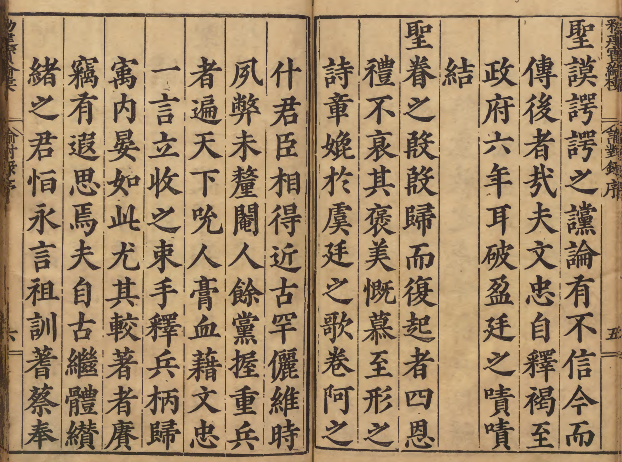 諭對錄序
五
聖謨諤諤之讜論有不信今而
傳後者㢤夫文忠自釋褐至
政府六年耳破盈廷之嘖嘖
結
聖眷之殷殷歸而復起者四恩
禮不衰其褒美慨慕至形之
詩章娩扵虞廷之歌卷阿之
什君臣相得近古罕儷維時
夙弊未釐閹人餘黨握重兵
者遍天下吮人膏血藉文忠
一言立收之束手釋兵柄歸
寓内晏如此尤其較著者賡
竊有遐思焉夫自古繼體纘
緒之君恒永言祖訓蓍蔡奉
六